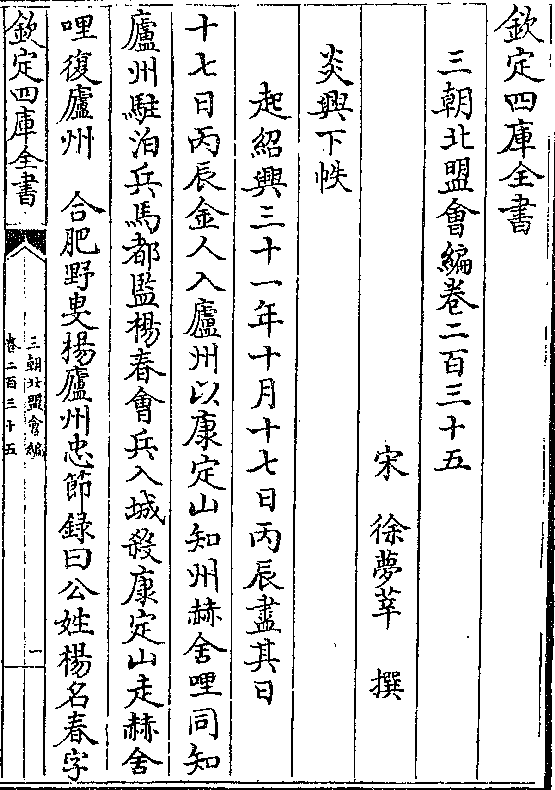 欽定四庫全書
三朝北盟會編卷二百三十五
宋 徐夢莘 撰
炎興下帙
起紹興三十一年十月十七日丙辰盡其日
十七日丙辰金人入廬州以康定山知州赫舍哩同知
廬州駐泊兵馬都監楊春會兵入城殺康定山走赫舍
哩復廬州 合肥野叟揚廬州忠節録曰公姓楊名春字
欽定四庫全書
三朝北盟會編
卷二百三十五
一